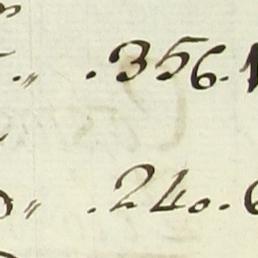 .356.
.240.